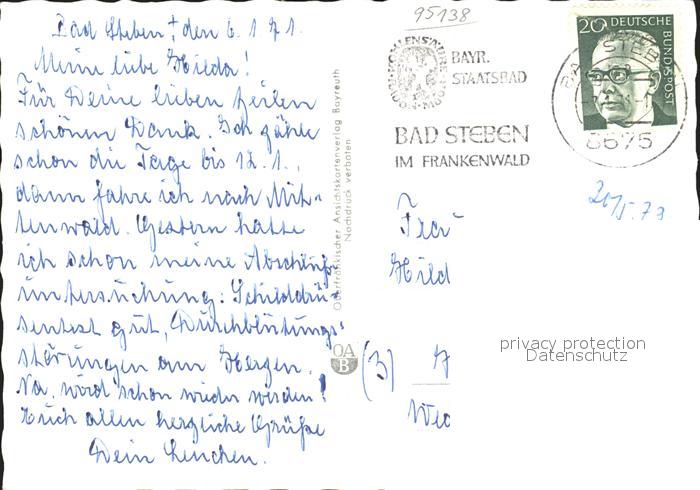 95138
Bad Steben, den 6.1.71.
Meine liebe Hilda!
Für Deine lieben Zeilen
schönen Dank. Ich zähle
schon die Tage bis 12.1.,
dann fahre ich nach Mit-
tenwald. Gestern hatte
ich schon meine Abschluß-
untersuchung: Schilddrü-
sentest gut, Durchblutungs-
störungen am Herzen.
Na, wird schon wieder werden!
Euch allen herzliche Grüße
Dein Lenchen.
Oberfränkischer Ansichtskartenverlag Bayreuth
Nachdruck verboten
OA
B
BAYR.
STAATSBAD
BAD STEBEN
IM FRANKENWALD
20 DEUTSCHE
BUNDESPOST
BAD STEBEN
8675
Frau
Hild
(3)
privacy protection
Datenschutz